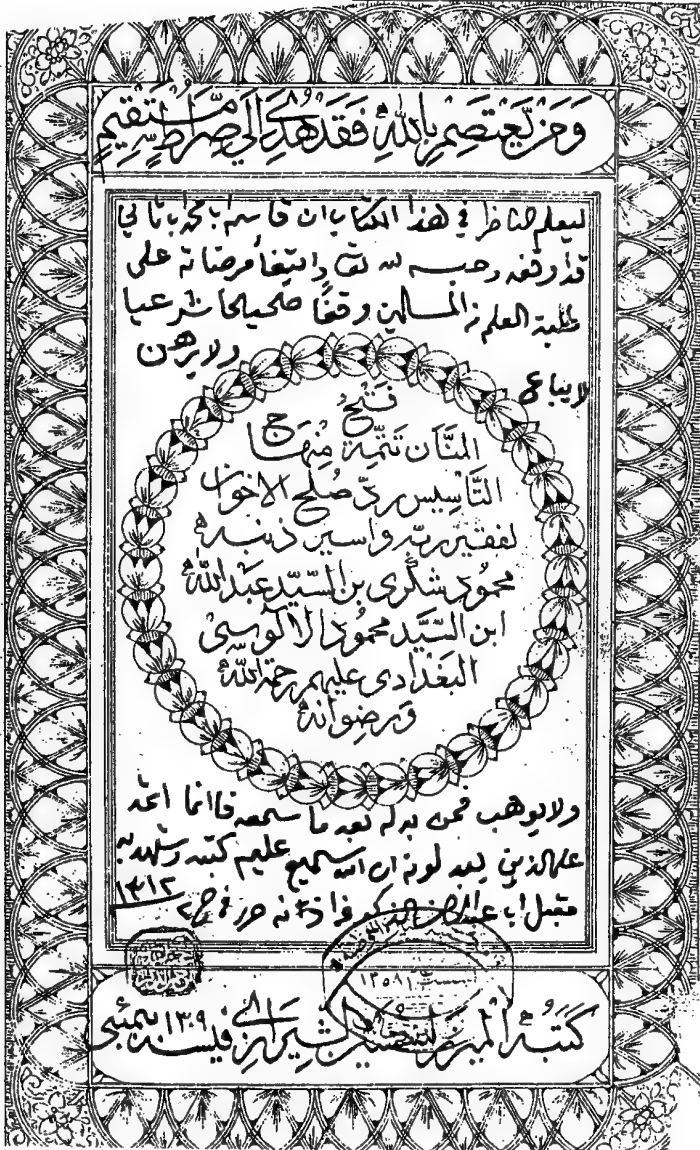 وَمَنْ يَعْتَصِمْ بِاللهِ فَقَدْ هُدِيَ إِلَى صِرَاطٍ مُسْتَقِيمٍ
ليعلم الناظر في هذا الكتاب ان قاسم ابن محمد ابن ثاني
قد اوقفه وحبسه لله تعالى وابتغاء مرضاته على
طلبة العلم من المسلمين وقفا صحيحا شرعيا
لايباع ولايرهن
فَتْحُ
المَنَّان تَتِمَّة مِنْهَاج
التَّأسِيس ردّ صُلح الاخوان
لفقير ربّه واسير ذنبه
محمُود شكرى بن السّيّد عبد الله
ابن السَّيّد محمُود الآلوسى
البَغْدادى عليهم رحمة الله
وَرضوانه
ولايوهب فمن بدله بعد ما سمعه فانما اثمه
على الذين يبدلونه ان الله سميع عليم كتبه وشهد به
مقبل ابن عبدالرحمن الذكير ١٣١٢
١٣٥٨
كَتَبَهُ الميرزا الشيرازي في سنه ١٣٠٩ بمبئى